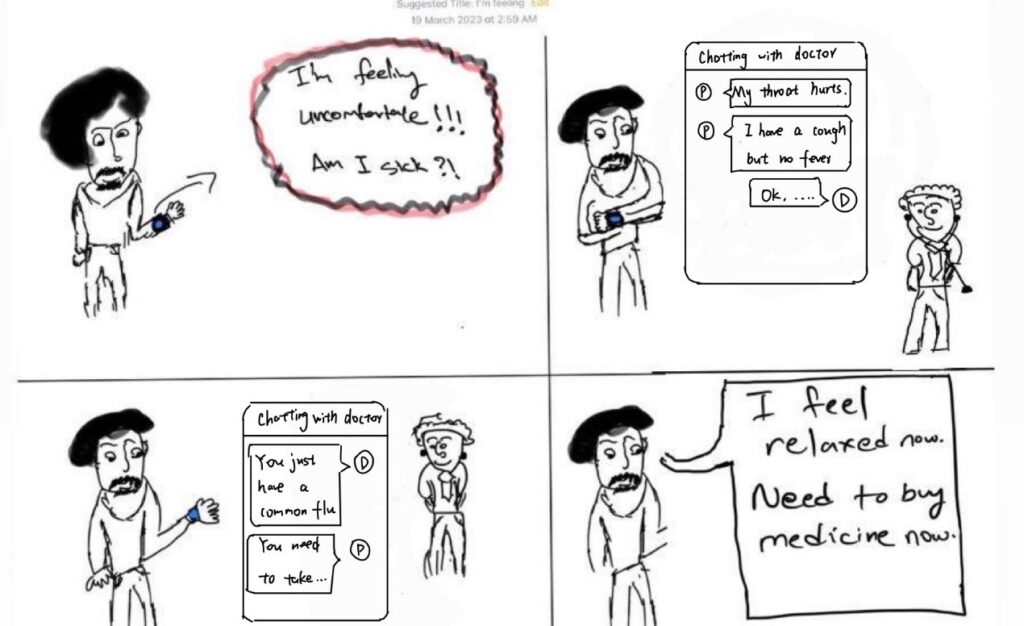 Suggested Title: I'm feeling Edit
19 March 2023 at 2:59 AM
I'm feeling
uncomfortale!!!
Am I sick?!
Chatting with doctor
P
My throat hurts.
P
I have a cough
but no fever
Ok, ....
D
Chatting with doctor
You just
have a
common flu
D
You need
to take...
P
I feel
relaxed now.
Need to buy
medicine now.